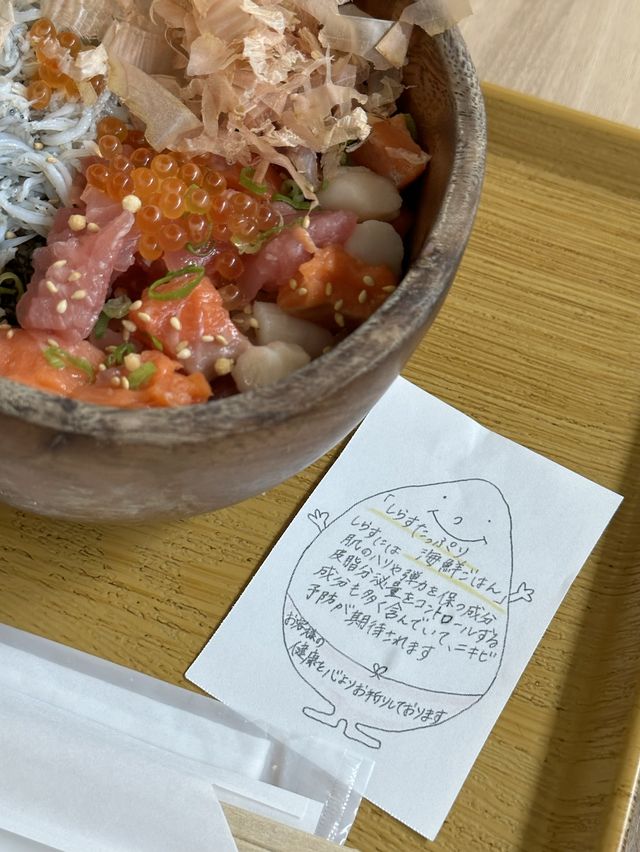 「しらすたっぷり
海鮮ごはん」
しらすには
肌のハリや弾力を保つ成分
皮脂分泌量をコントロールする
成分も多く含んでいて、ニキビ
予防が期待されます
お客様の
健康を心よりお祈りしております